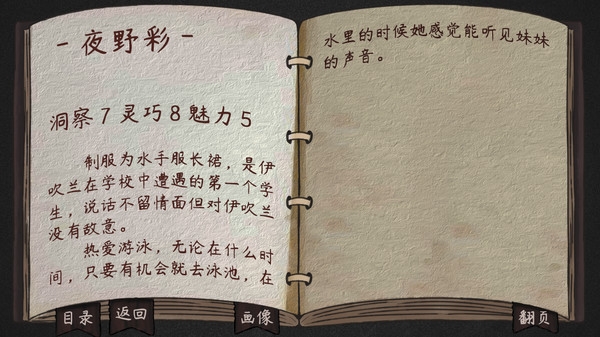 -夜野彩-
洞察7灵巧8魅力5
制服为水手服长裙，是伊
吹兰在学校中遭遇的第一个学
生，说话不留情面但对伊吹兰
没有敌意。
热爱游泳，无论在什么时
间，只要有机会就去泳池，在
水里的时候她感觉能听见妹妹
的声音。
目录
返回
画像
翻页